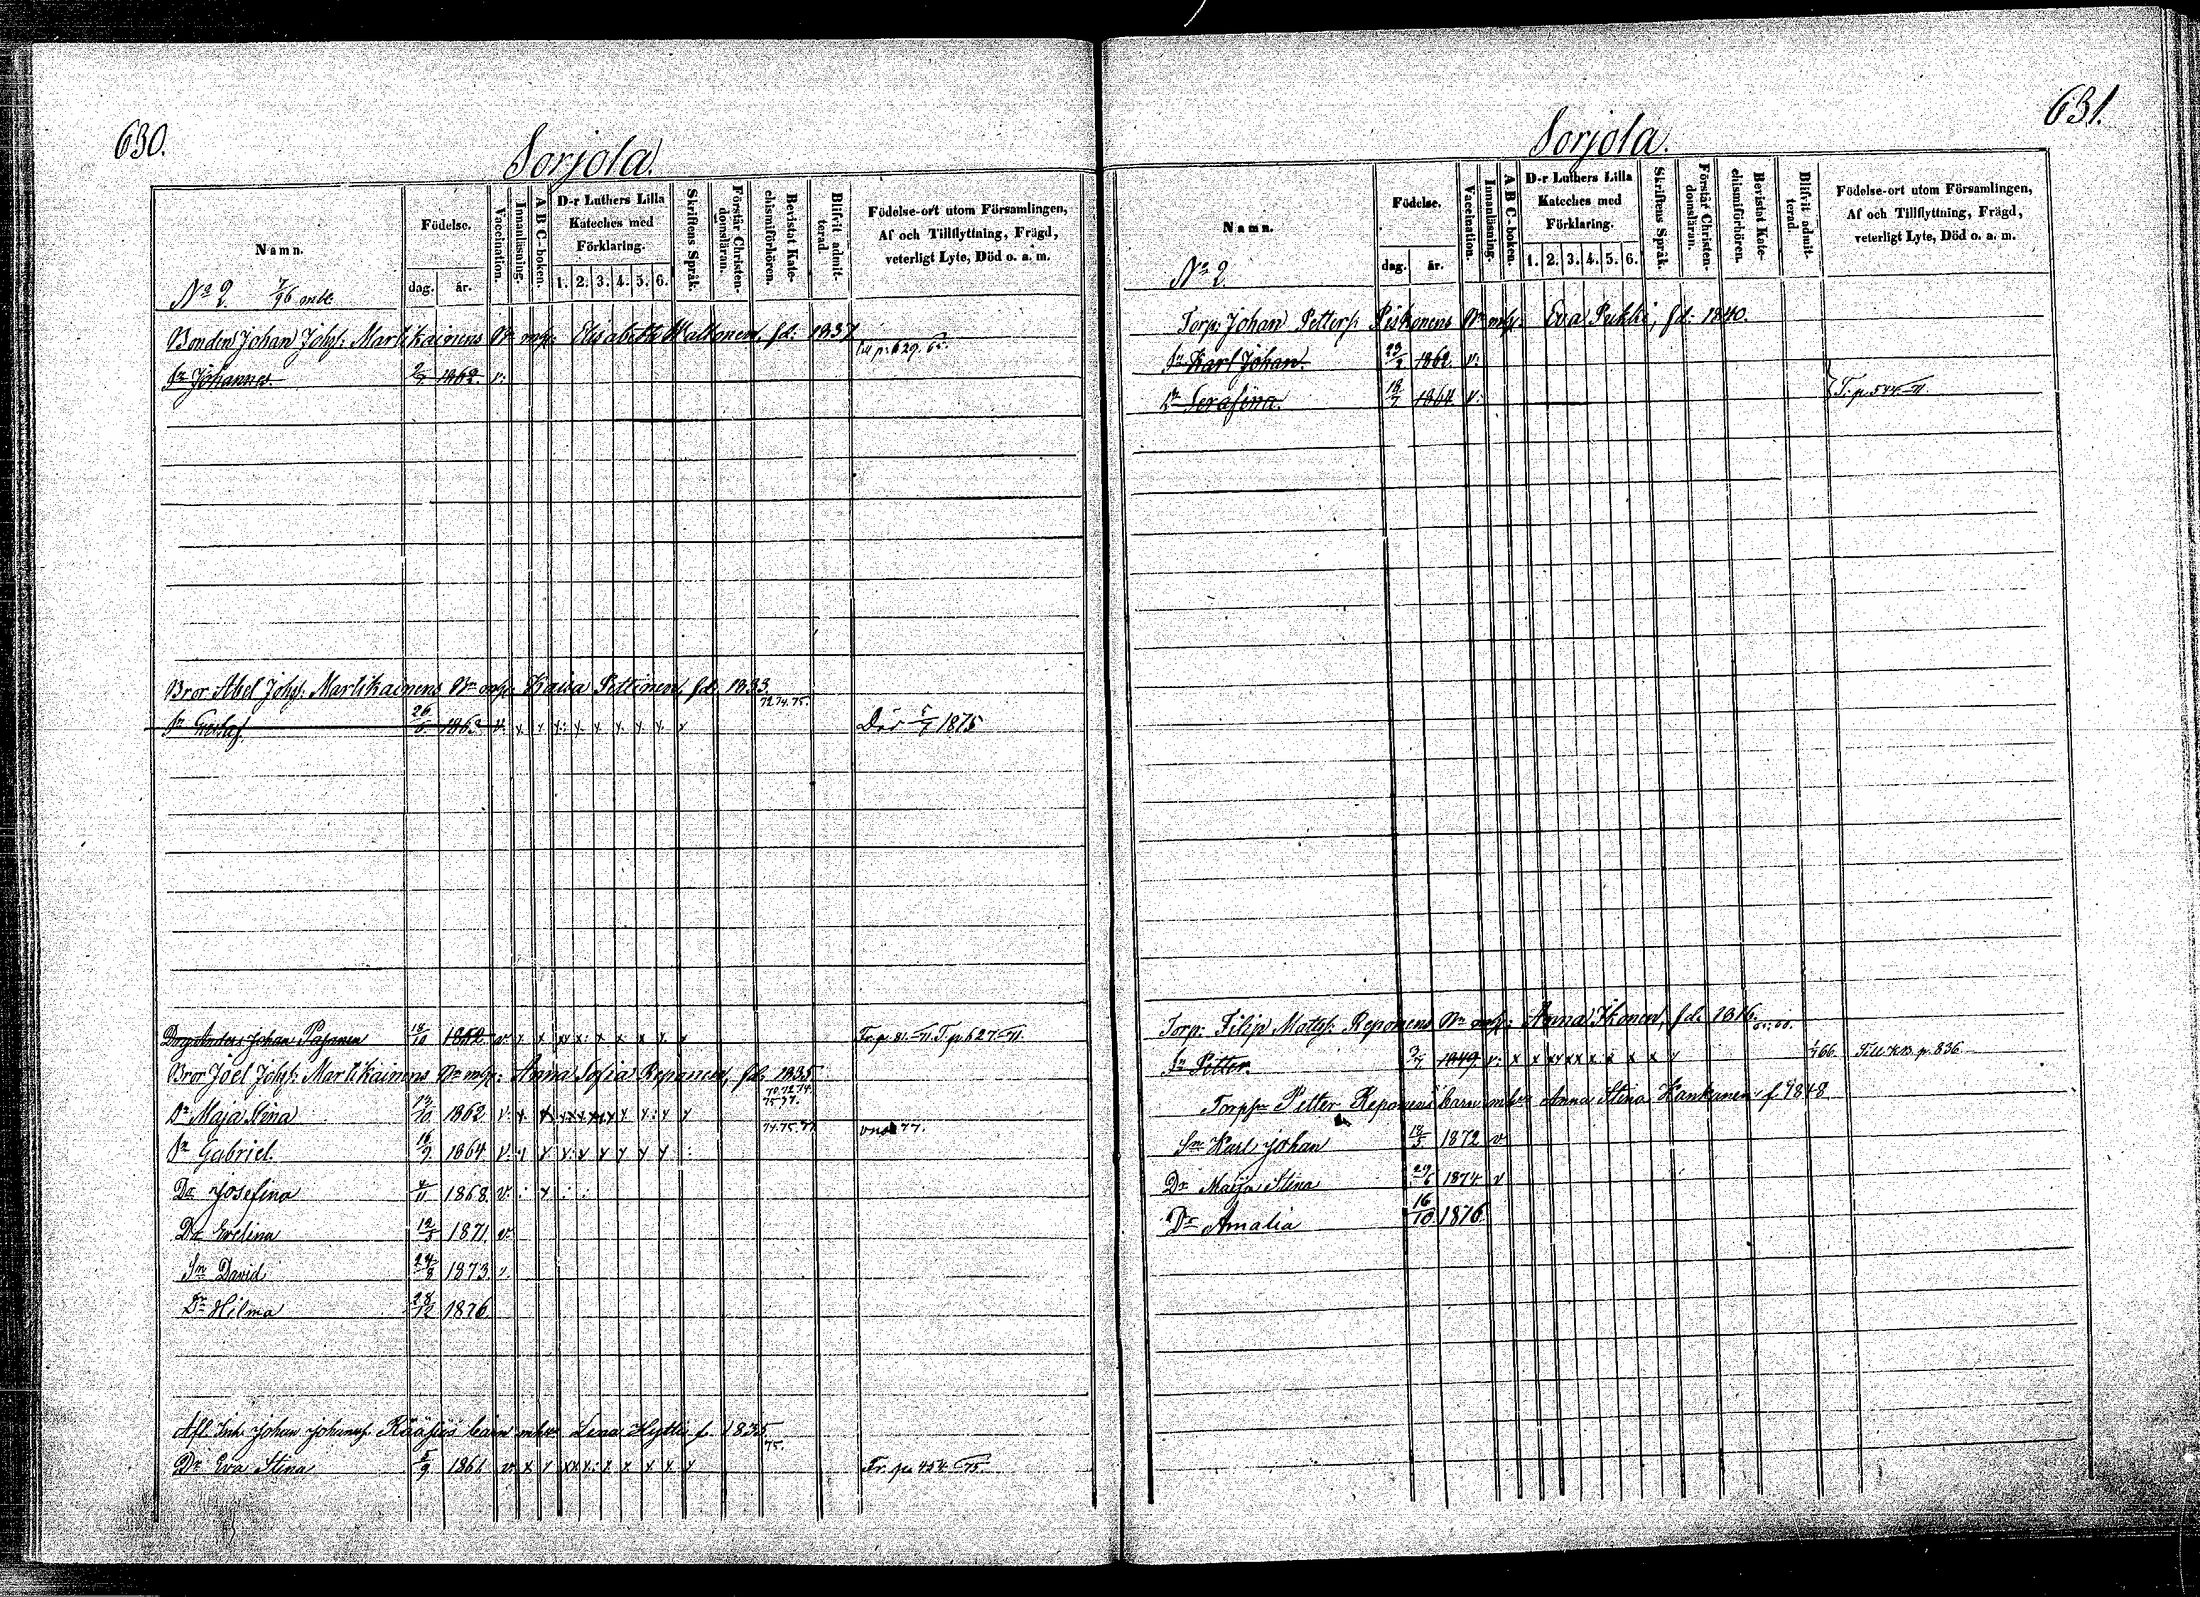 630.
Sorjola.
Namn.
Födelse.
dag. år.
Vaccination.
Innanläsning.
A B C-boken.
D-r Luthers Lilla
Kateches med
Förklaring.
1. 2. 3. 4. 5. 6.
Skriftens Språk.
Förstår Christen-
domsläran.
Bevistat Kate-
chismiförhören.
Blifvit admit-
terad.
Födelse-ort utom Församlingen,
Af och Tillflyttning, Frägd,
veterligt Lyte, Död o. a. m.
No 2.
Bonden Johan Johs: Martikainens Bn mh: Elisabeth Maltonen, fd: 1837.
Sn Johannes. 2/7 1862. v: till p. 629.
Bror Abel Johs: Martikainens Bn mh: Kaisa Pettinen, fd. 1833.
72.74.75.
Sn Gustaf. 26/6 1863 v: x x x: x x x x x x Död 5/7 1875
Drg Anders Johan Pasonen 18/10 1852 v: x x xx x: x x x x x Fr. p. 81.-71. T. p 627.-71.
Bror Joel Johs: Martikainens Bn mh: Anna Sofia Reponen, fd. 1835
70.72.74.
75.77.
Dr Maja Stina 13/10 1862 v: x
74.75.77.
Sn Gabriel. 16/9 1864 v: x x x: x x x x x :
Dr Josefina 4/11 1868. v: : x : :
Dr Evelina 12/5 1871. v:
Sn David 24/8 1873 v.
Dr Hilma 28/12 1876
Afl. Inh. Johan Johanns. Rääsüs barn mhu Lena Hyttis f. 1835
75.
Dr Eva Stina 5/9 1861 v x x xx x: x x x x x Fr. pa 454.-75.
631.
Sorjola.
Namn.
Födelse.
dag. år.
Vaccination.
Innanläsning.
A B C-boken.
D-r Luthers Lilla
Kateches med
Förklaring.
1. 2. 3. 4. 5. 6.
Skriftens Språk.
Förstår Christen-
domsläran.
Bevistat Kate-
chismiförhören.
Blifvit admit-
terad.
Födelse-ort utom Församlingen,
Af och Tillflyttning, Frägd,
veterligt Lyte, Död o. a. m.
No 2.
Torp: Johan Petters: Piskonens Bn mh: Eva Pukki, fd. 1840.
Sn Karl Johan. 23/2 1862. v:
Dr Serafina. 18/7 1864. v: T. p. 544-71.
Torp: Filip Matts: Reponens Bn mh: Anna Ikonen, fd. 1816.
Sn Petter. 3/7 1849. v: x x xx xx x. x x x x 1/7 66. Till KB. p. 836
Torpsn Petter Reponens barn mhu Anna Stina Kankanen f. 1848
Sn Karl Johan 18/5 1872 v
Dr Maija Stina 29/6 1874 v
Dr Amalia 16/10 1876